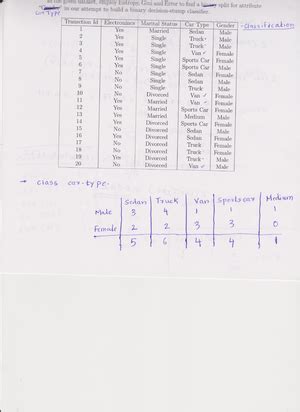 In the given dataset, employ Entropy, Gini and Error to find a binary split for attribute
Car Type
in our attempt to build a binary decision-stump classifier.
Transction Id Electroniccs Marital Status Car Type Gender - classification
1 Yes Married Sedan Male
2 Yes Single Truck Male
3 Yes Single Truck Male
4 Yes Single Van ✓ Female
5 Yes Single Sports Car Female
6 Yes Single Sports Car Male
7 No Single Sedan Female
8 No Single Sedan Male
9 No Single Truck Male
10 No Divorced Van ✓ Female
11 Yes Married Van ✓ Female
12 Yes Married Sports Car Female
13 Yes Married Medium Male
14 Yes Divorced Sports Car Female
15 Yes Divorced Sedan Male
16 No Divorced Sedan Female
17 No Divorced Truck Female
18 No Divorced Truck Female
19 Yes Divorced Truck Male
20 No Divorced Van ✓ Male
→ class car-type-
Sedan Truck Van Sportscar Medium
Male 3 4 1 1 1
Female 2 2 3 3 0
5 6 4 4 1